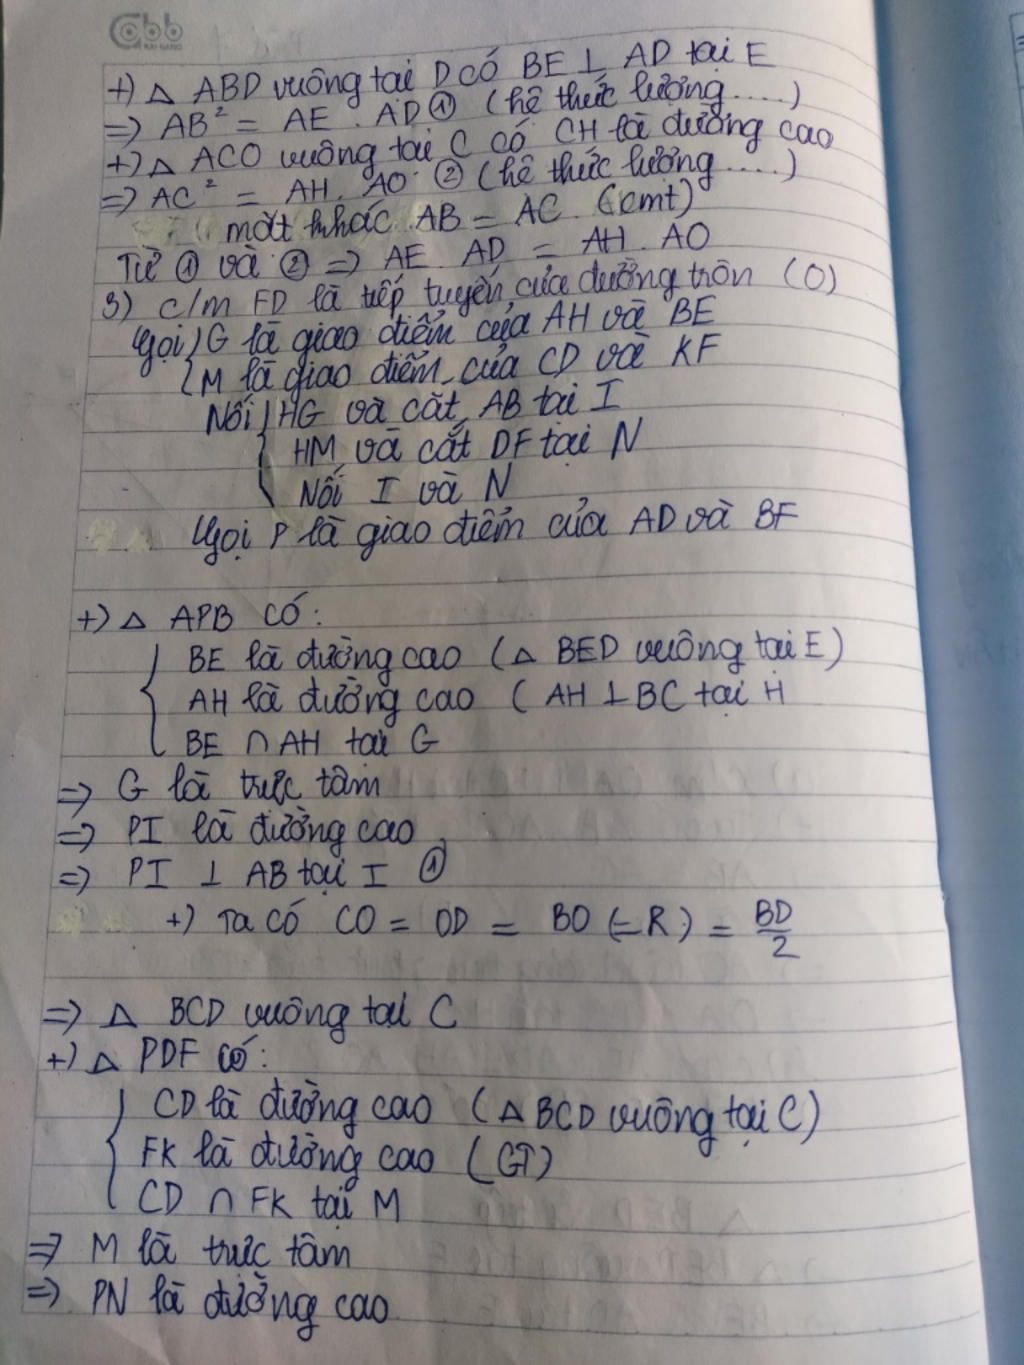 Cabb
HẢI GIANG
+) △ ABD vuông tại D có BE ⊥ AD tại E
=> AB² = AE . AD ① (hệ thức lượng ....)
+) △ ACO vuông tại C có CH là đường cao
=> AC² = AH. AO ② (hệ thức lượng ....)
mặt khác AB = AC (cmt)
Từ ① và ② => AE . AD = AH . AO
3) c/m FD là tiếp tuyến của đường tròn (O)
Gọi { G là giao điểm của AH và BE
{ M là giao điểm của CD và KF
Nối { HG và cắt AB tại I
HM và cắt DF tại N
Nối I và N
Gọi P là giao điểm của AD và BF
+) △ APB có:
{ BE là đường cao (△ BED vuông tại E)
AH là đường cao ( AH ⊥ BC tại H
BE ∩ AH tại G
=> G là trực tâm
=> PI là đường cao
=> PI ⊥ AB tại I ①
+) Ta có CO = OD = BO (=R) = BD/2
=> △ BCD vuông tại C
+) △ PDF có:
{ CD là đường cao (△ BCD vuông tại C)
FK là đường cao (GT)
CD ∩ FK tại M
=> M là trực tâm
=> PN là đường cao